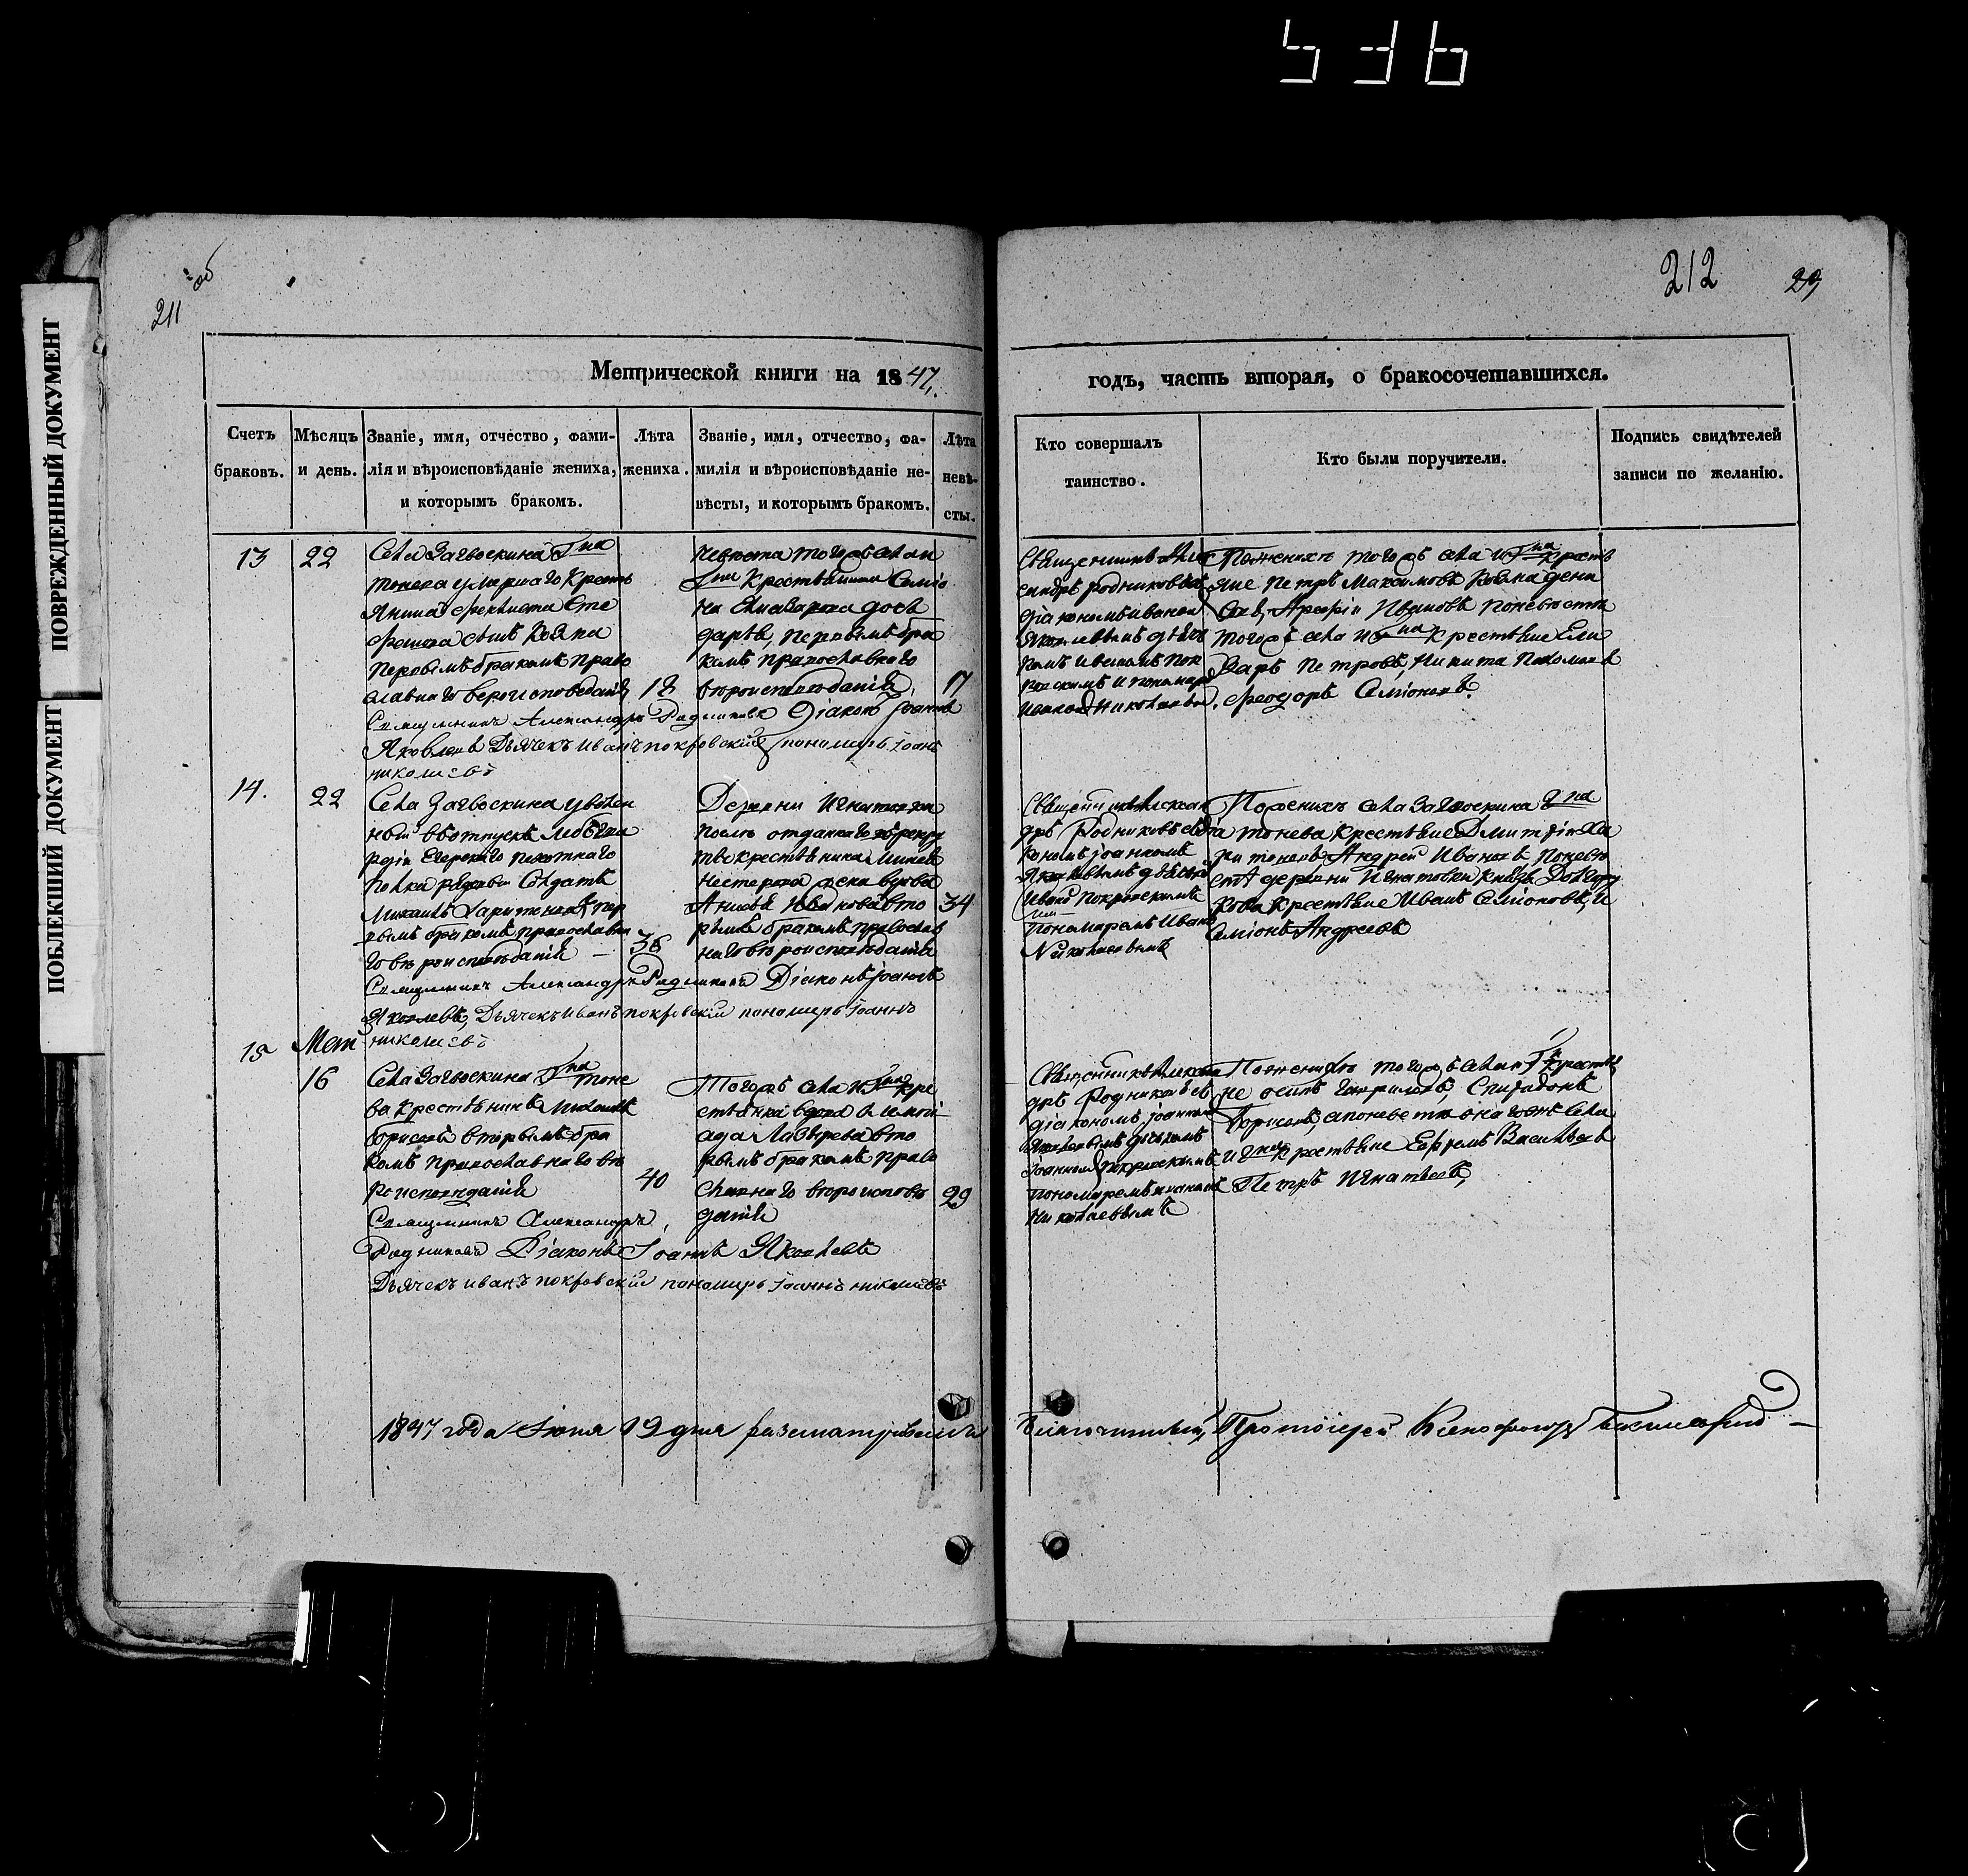 536
ПОВРЕЖДЕННЫЙ ДОКУМЕНТ
ПОБЛЕКШИЙ ДОКУМЕНТ
211 об
212
29
Метрической книги на 1847.
годъ, часть вторая, о бракосочетавшихся.
Счетъ браковъ.
Мѣсяцъ и день.
Званіе, имя, отчество, фами-
лія и вѣроисповѣданіе жениха,
и которымъ бракомъ.
Лѣта жениха.
Званіе, имя, отчество, фа-
милія и вѣроисповѣданіе не-
вѣсты, и которымъ бракомъ.
Лѣта
невѣ-
сты.
Кто совершалъ
таинство.
Кто были поручители.
Подпись свидѣтелей
записи по желанію.
13
22
Села Загвоскина Гна
Тонева умершаго Крестья
янина
сынъ
первымъ бракомъ право
славнаго вероисповеданія
18
невеста тогожъ села и
Гна Крестьянина Семіо
на Елиазарова дочь
Дарья, первымъ бра
комъ православнаго
вероисповеданія,
17
Священникъ Алек
сандръ Родниковъ съ
діакономъ Иваномъ
Яковлевымъ дьяч
комъ Иваномъ Пок
ровскимъ и пономаремъ
Иваномъ Николаевымъ.
По женихѣ тогожъ села и Гна Кресть
яне Петръ Максимовъ
Арефій Ивановъ по невѣсте
тогожъ села и Гна Крестьяне Ели
заръ Петровъ, Никита
Феодоръ Семіоновъ.
Священникъ Александръ Родниковъ Діаконъ Іоаннъ
Яковлевъ Дьячекъ Иванъ Покровскій пономарь Іоаннъ
Николаевъ
14.
22
Села Загвоскина уволен
ный въ отпускъ
Егерскаго пехотнаго
полка рядовой Солдатъ
Михаилъ Харитоновъ пер
вымъ бракомъ православна
го вѣроисповѣданія
36
Деревни Игнатовки
после отданнаго в рекру
ты крестьянина
Нестерова жена вдова
Ивановна вто
рымъ бракомъ православ
наго вѣроисповѣданія
34
Священникъ Алексан
дръ Родниковъ съ діа
кономъ Іоанномъ
Яковлевымъ дьячкомъ
Иваномъ Покровскимъ
пономаремъ Иваномъ
Николаевымъ
По женихѣ села Загвоскина Гна
Тонева крестьяне Дмитрій Ха
ритоновъ Андрей Ивановъ по невѣ
стѣ деревни Игнатовки Князя Долгору
кова крестьяне Иванъ Семіоновъ, и
Семіонъ Андреевъ
Священникъ Александръ Родниковъ Діаконъ Іоаннъ
Яковлевъ, Дьячекъ Иванъ Покровскій пономарь Іоаннъ
Николаевъ
15
Маія
16
Села Загвоскина Гна Тоне
ва Крестьянинъ Михаилъ
Борисовъ вторымъ бра
комъ православнаго вѣ
роисповѣданія
40
Тогожъ села и Гна кре
стьянка вдова
Лазырева вто
рымъ бракомъ право
славнаго вѣроисповѣ
данія
29
Священникъ Алексан
дръ Родниковъ съ
діакономъ Іоанномъ
Яковлевымъ дьячкомъ
Іоанномъ Покровскимъ
пономаремъ Иваномъ
Николаевымъ
По женихѣ тогожъ села и Гна Кресть
не Осипъ Гавриловъ, Спиридонъ
Борисовъ, а по невестѣ онагожъ села
и Гна Крестьяне Ефремъ Васильевъ
Петръ Игнатьевъ,
Священникъ Александръ
Родниковъ Діаконъ Іоаннъ Яковлевъ
Дьячекъ Иванъ Покровскій пономарь Іоаннъ Николаевъ
1847 года Іюня 19 дня разсматривалъ Благочинный, Протоіерей Ксенофонтъ